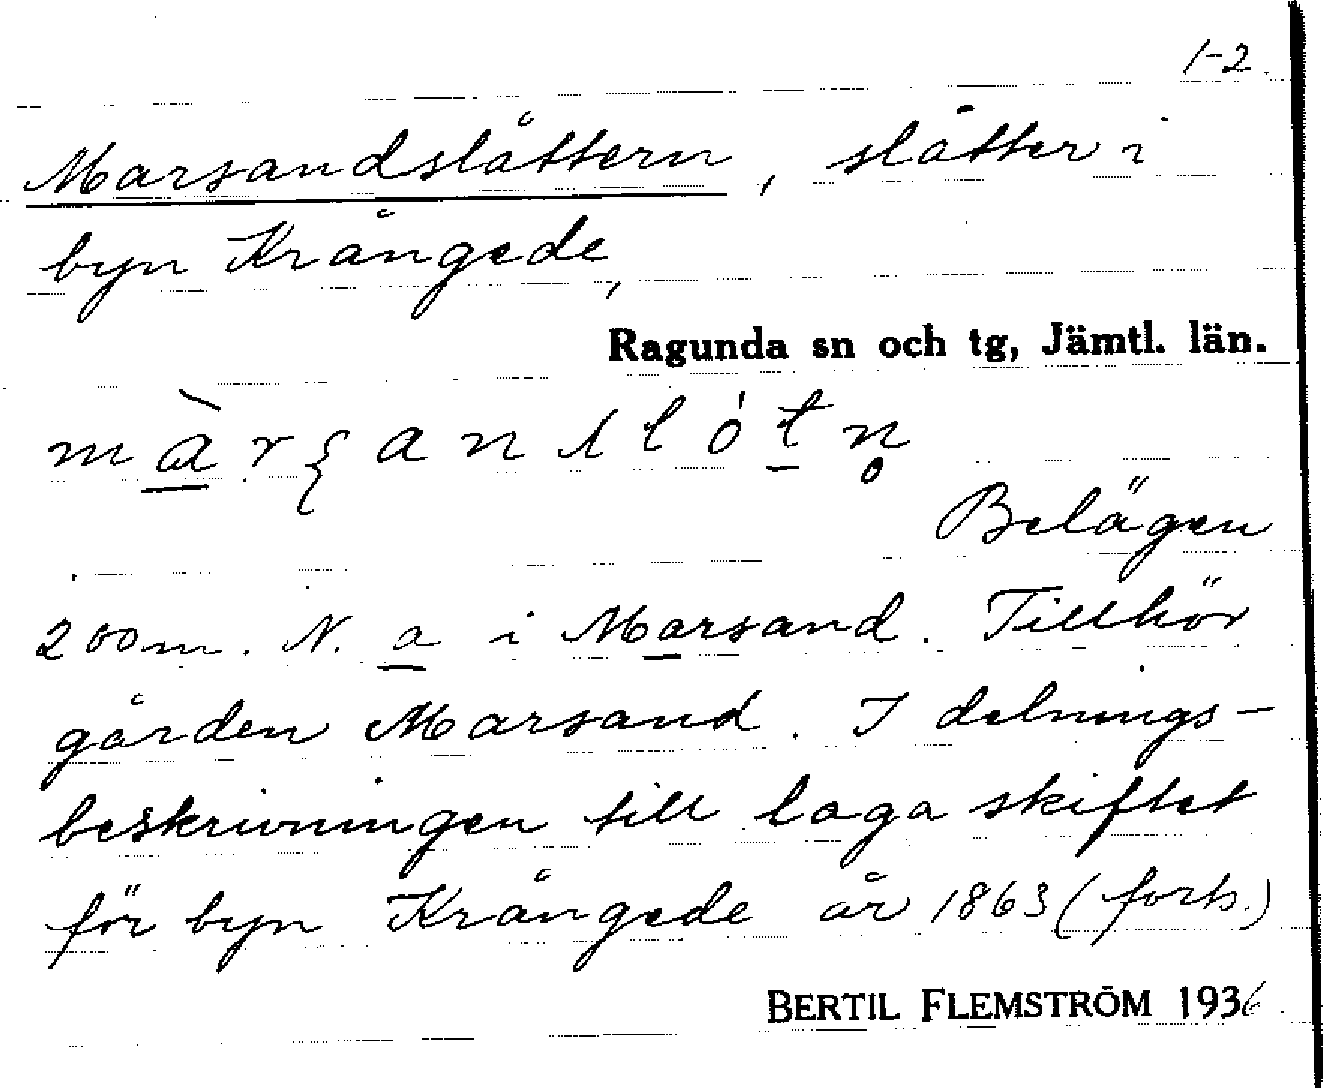 1-2
Marsandslåttern, slåtter i
byn Krångede,
Ragunda sn och tg, Jämtl. län.
Belägen
200 m. N. a i Marsand. Tillhör
gården Marsand. I delnings-
beskrivningen till laga skiftet
för byn Krångede år 1863 (forts.)
BERTIL FLEMSTRÖM 1936